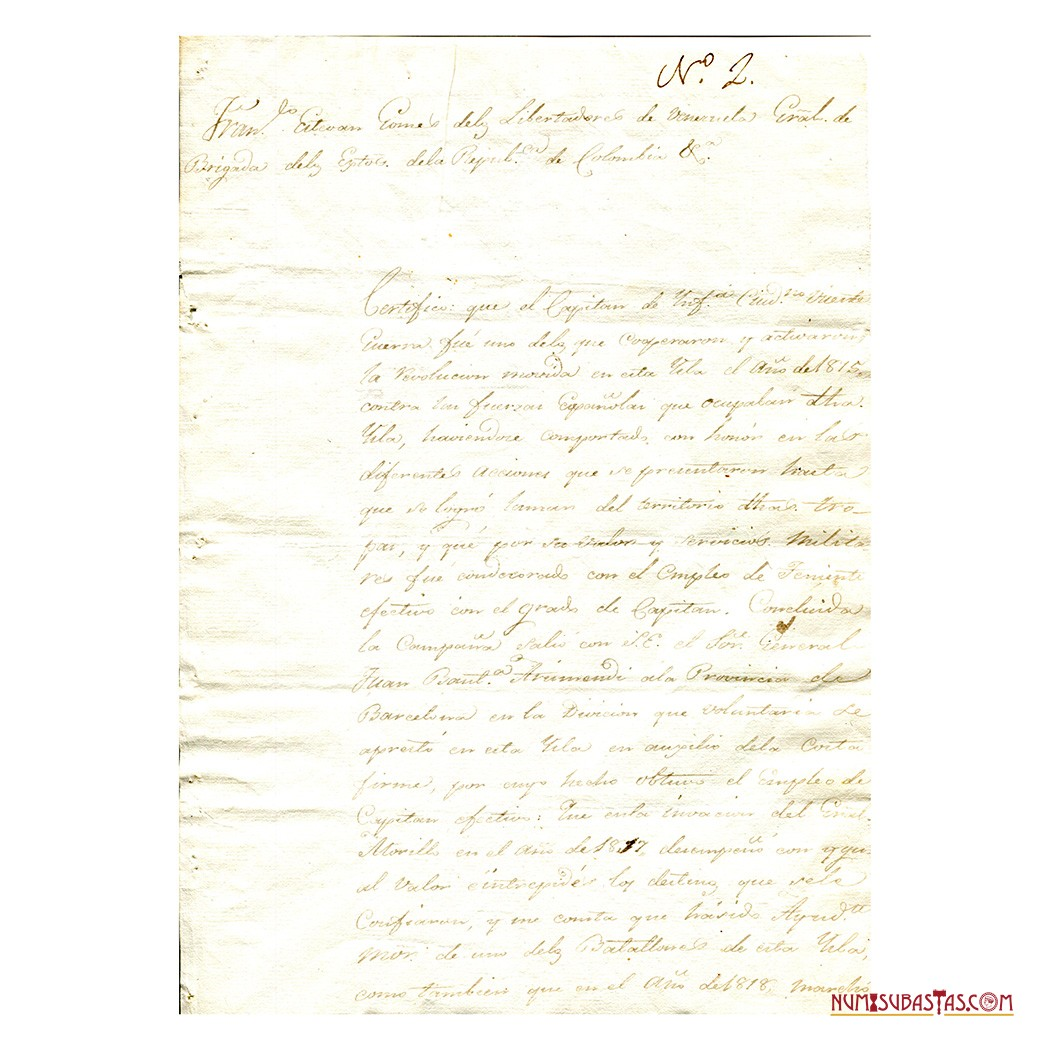 Nº. 2.
Fran.do Estevan Gomes delos Libertadores de Venezuela Gral. de
Brigada delos Extos. dela Repub.ca de Colombia &.a
Certifico: que el Capitan de Ynf.a Ciud.no Vicente
Guerra fué uno delos que Cooperaron y activaron
la Revolucion movida en esta Ysla el Año de 1815
contra las fuerzas Españolas que ocupaban dha.
Ysla, haviendose comportado con honór en las
diferentes acciones que se presentaron hasta
que se logró lansar del territorio dhas. tro-
pas, y qué por su valor y servicios milita
res fué condecorado con el Empleo de Teniente
efectivo con el grado de Capitan. Concluida
la Campaña salió con S.E. el Sor. General
Juan Baut.a Arismendi ala Provincia de
Barcelona en la Divicion que voluntaria se
aprestó en esta Ysla en auxilio dela Costa
firme, por cuyo hecho obtuvo el Empleo de
Capitan efectivo: Que en la invacion del Gral.
Morillo en el Año de 1817 desempeñó con ygu
al Valor é intrepidés los destinos que sele
Confiaron, y me consta que há sido Ayud.te
mor. de uno delos Batallones de esta Ysla,
como tambien que en el Año de 1818, marchó
NUMISUBASTAS.COM